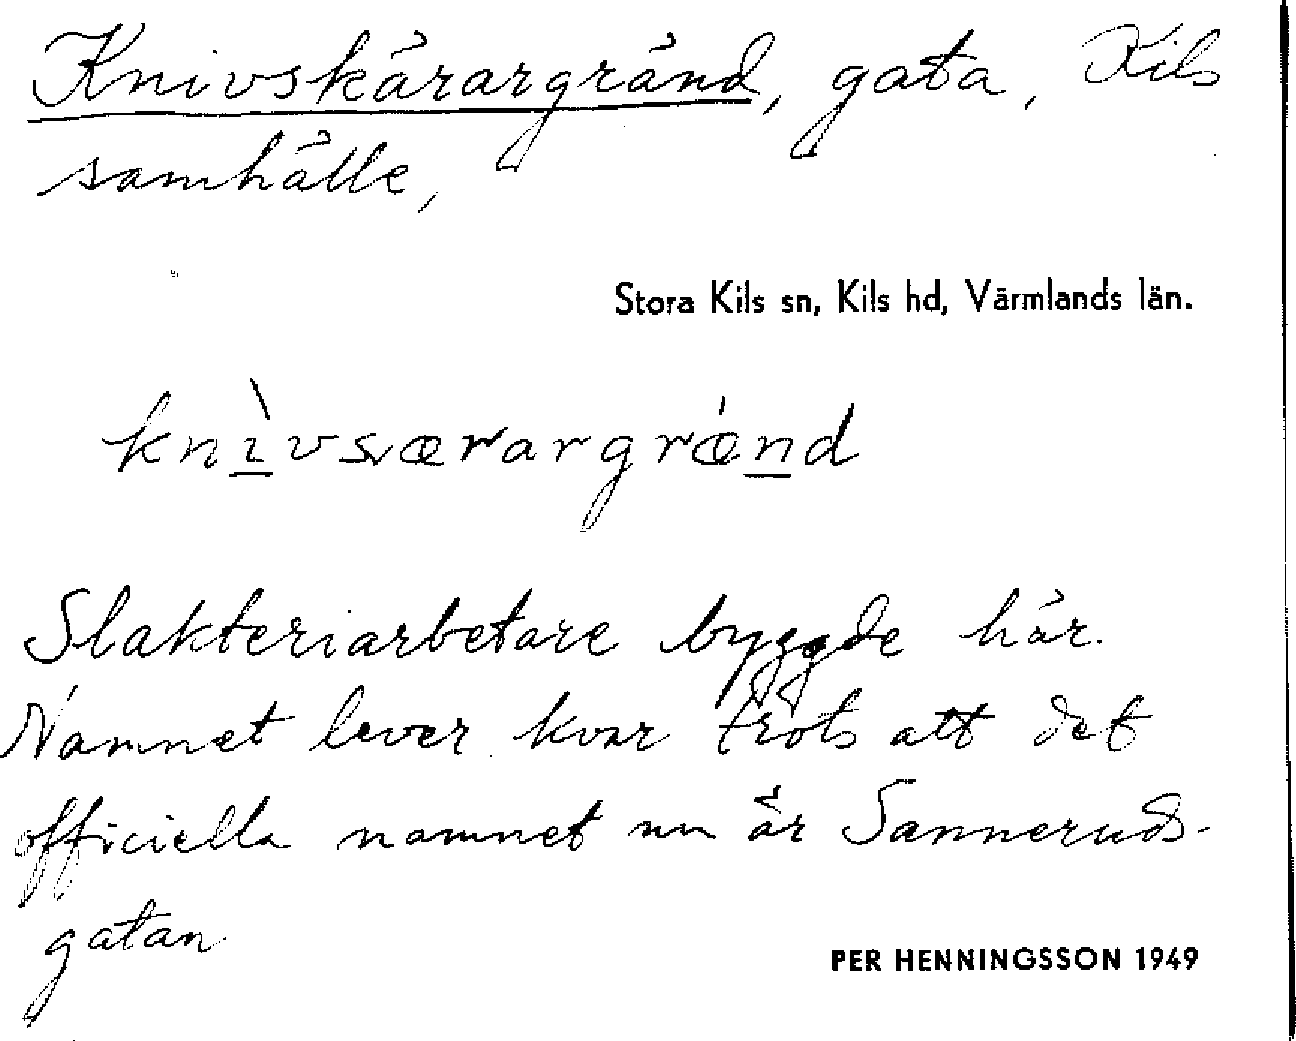 Knivskärargränd, gata, Kils
samhälle,
Stora Kils sn, Kils hd, Värmlands län.
Slakteriarbetare byggde här.
Namnet lever kvar trots att det
officiella namnet nu är Sanneruds-
gatan
PER HENNINGSSON 1949